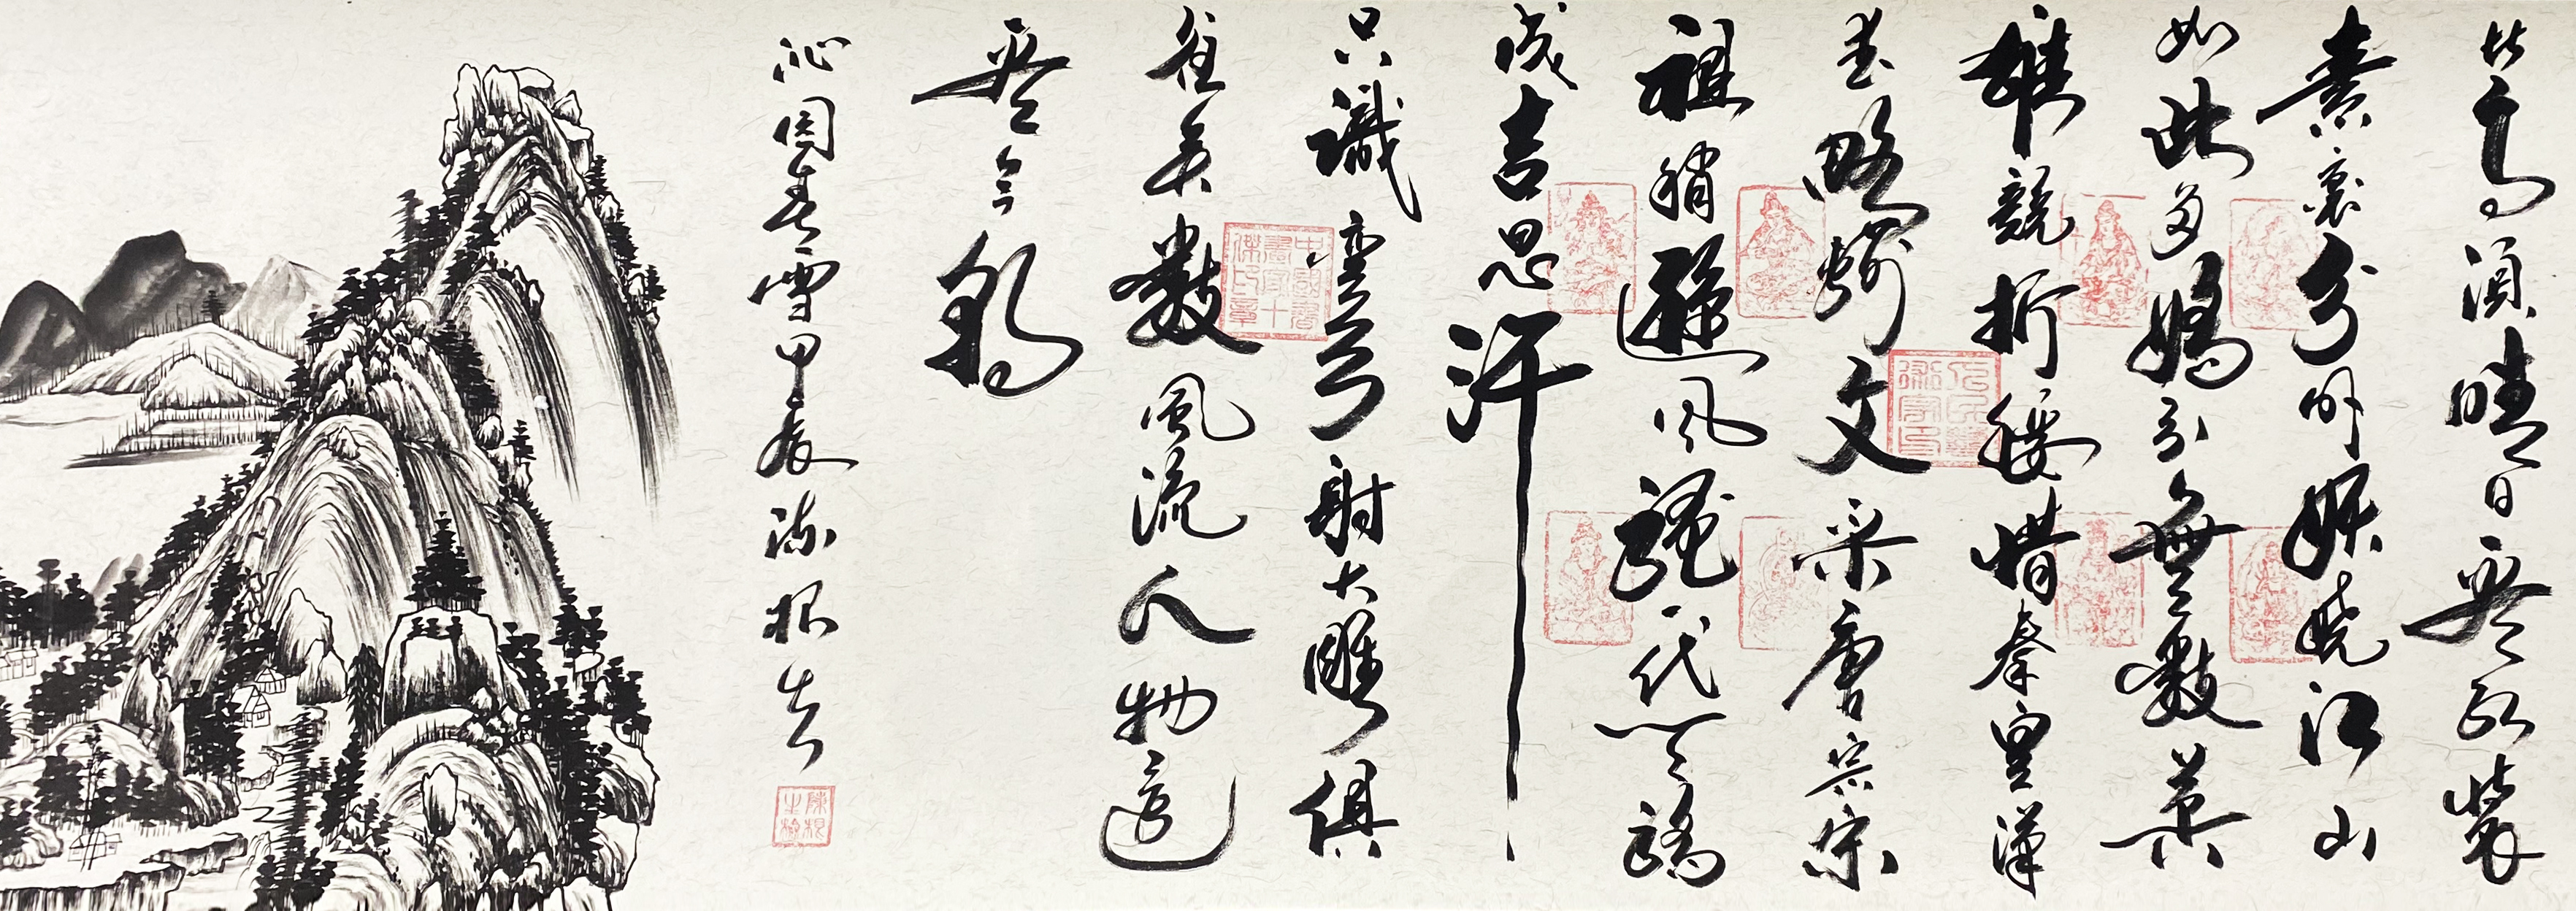 比高須晴日看紅裝
素裹分外妖嬈江山
如此多嬌引無數英
雄競折腰惜秦皇漢
武略輸文采唐宗宋
祖稍遜風騷一代天驕
成吉思汗
只識彎弓射大雕俱
往矣數風流人物還
看今朝
沁園春雪甲辰陳根
人民藝術家印
中國書畫家十傑